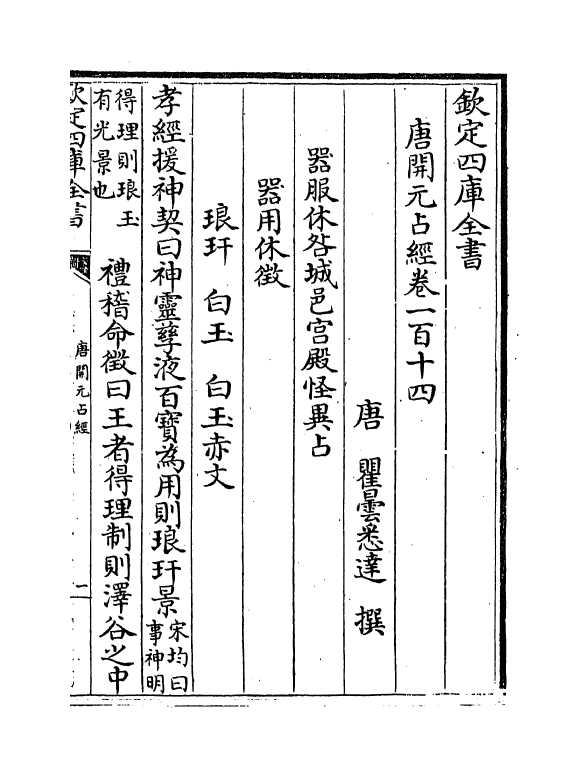 欽定四庫全書
唐開元占經卷一百十四
唐 瞿曇悉達 撰
器服休咎城邑宫殿怪異占
器用休徵
琅玕 白玉 白玉赤文
孝經援神契曰神靈孳液百寶為用則琅玕景宋均曰事神明
得理則琅玉有光景也 禮稽命徵曰王者得理制則澤谷之中
欽定四庫全書
唐開元占經